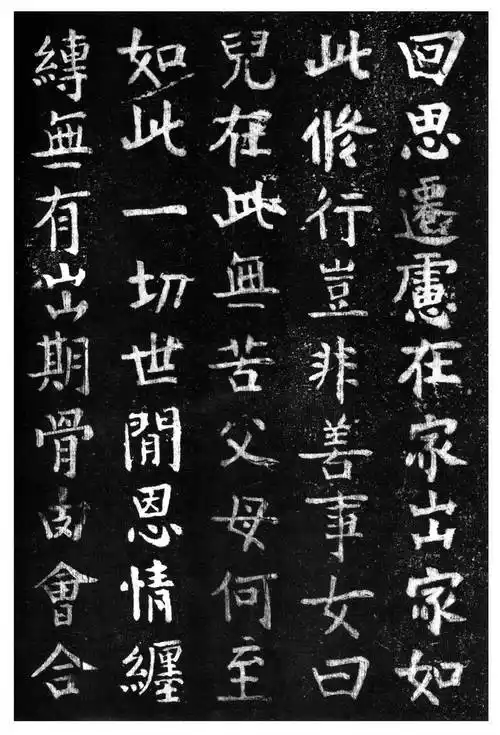 回思遷慮在家出家如
此修行豈非善事女曰
兒在此無苦父母何至
如此一切世間恩情纏
縛無有出期骨肉會合